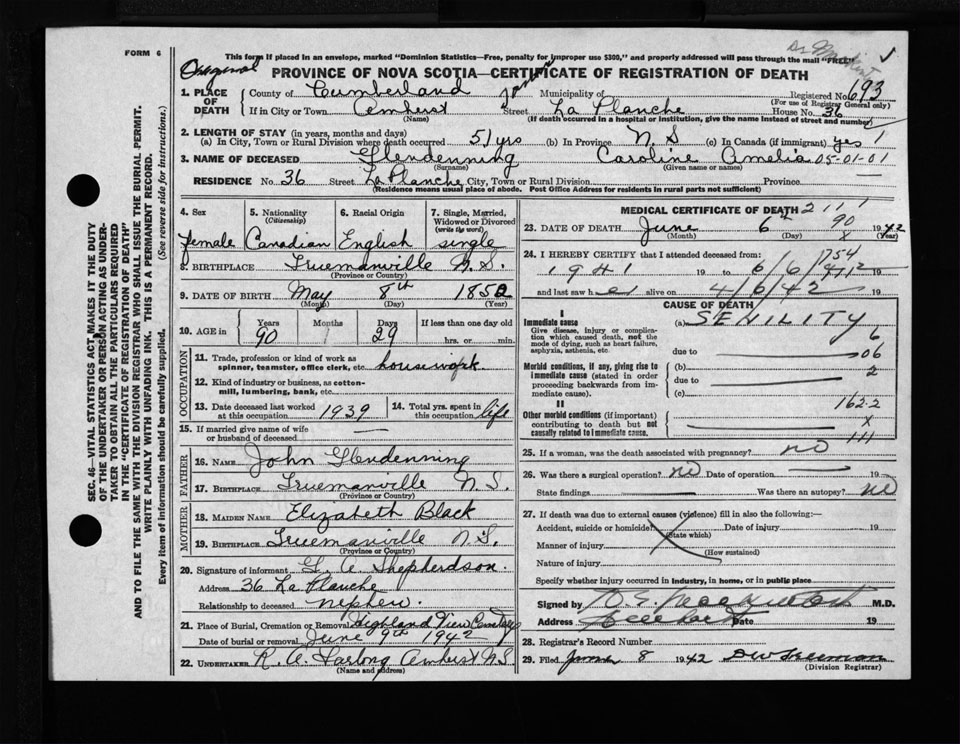 FORM 6
This form if placed in an envelope, marked "Dominion Statistics—Free, penalty for improper use $300," and properly addressed will pass through the mail "FREE"
Original
PROVINCE OF NOVA SCOTIA—CERTIFICATE OF REGISTRATION OF DEATH
1. PLACE OF DEATH
County of Cumberland Municipality of Registered No. 693
(For use of Registrar General only)
If in City or Town Amherst Street La Planche House No. 36
(Name) (If death occurred in a hospital or institution, give the name instead of street and number)
2. LENGTH OF STAY (in years, months and days)
(a) In City, Town or Rural Division where death occurred 51 yrs (b) In Province N.S (c) In Canada (if immigrant) yes 1
3. NAME OF DECEASED Glendenning Caroline Amelia 05-01-01
(Surname) (Given name or names)
RESIDENCE No. 36 Street La Planche City, Town or Rural Division Province
(Residence means usual place of abode. Post Office Address for residents in rural parts not sufficient)
4. Sex female
5. Nationality (Citizenship) Canadian
6. Racial Origin English
7. Single, Married, Widowed or Divorced (write the word) single
8. BIRTHPLACE Truemanville N.S.
(Province or Country)
9. DATE OF BIRTH May 8th 1852
(Month) (Day) (Year)
10. AGE in Years 90 Months Days 29 If less than one day old hrs. or min.
OCCUPATION
11. Trade, profession or kind of work as spinner, teamster, office clerk, etc. housework
12. Kind of industry or business, as cotton-mill, lumbering, bank, etc.
13. Date deceased last worked at this occupation 1939
14. Total yrs. spent in this occupation life
15. If married give name of wife or husband of deceased
FATHER
16. NAME John Glendenning
17. BIRTHPLACE Truemanville N.S.
(Province or Country)
MOTHER
18. MAIDEN NAME Elizabeth Black
19. BIRTHPLACE Truemanville N.S.
(Province or Country)
20. Signature of informant G. A. Shepherdson.
Address 36 La Planche
Relationship to deceased nephew.
21. Place of Burial, Cremation or Removal Highland View Cemetery
Date of burial or removal June 9th 1942
22. UNDERTAKER R. A. Furlong Amherst N.S
(Name and address)
MEDICAL CERTIFICATE OF DEATH 2 1 1 1
23. DATE OF DEATH June 6th 90 1942
(Month) (Day) x (Year)
24. I HEREBY CERTIFY that I attended deceased from: 1754
1941 19 to 6/6/42 19
and last saw h er alive on 4/6/42 19
CAUSE OF DEATH
I
Immediate cause
Give disease, injury or complication which caused death, not the mode of dying, such as heart failure, asphyxia, asthenia, etc.
(a) SENILITY
6
due to 06
Morbid conditions, if any, giving rise to immediate cause (stated in order proceeding backwards from immediate cause).
(b) 2
due to
(c)
162-2
II
Other morbid conditions (if important) contributing to death but not causally related to immediate cause.
x
111
25. If a woman, was the death associated with pregnancy? no
26. Was there a surgical operation? no Date of operation 19
State findings Was there an autopsy? no
27. If death was due to external causes (violence) fill in also the following:—
Accident, suicide or homicide? Date of injury 19
(State which)
Manner of injury
(How sustained)
Nature of injury
Specify whether injury occurred in industry, in home, or in public place
Signed by M.D.
Address Date 19
28. Registrar's Record Number
29. Filed June 8 1942 DW Freeman
(Division Registrar)
SEC. 46—VITAL STATISTICS ACT MAKES IT THE DUTY
OF THE UNDERTAKER OR PERSON ACTING AS UNDER-
TAKER TO OBTAIN ALL THE PARTICULARS REQUIRED
IN THE "CERTIFICATE OF REGISTRATION OF DEATH"
AND TO FILE THE SAME WITH THE DIVISION REGISTRAR WHO SHALL ISSUE THE BURIAL PERMIT.
WRITE PLAINLY WITH UNFADING INK. THIS IS A PERMANENT RECORD.
Every item of information should be carefully supplied. (See reverse side for instructions.)